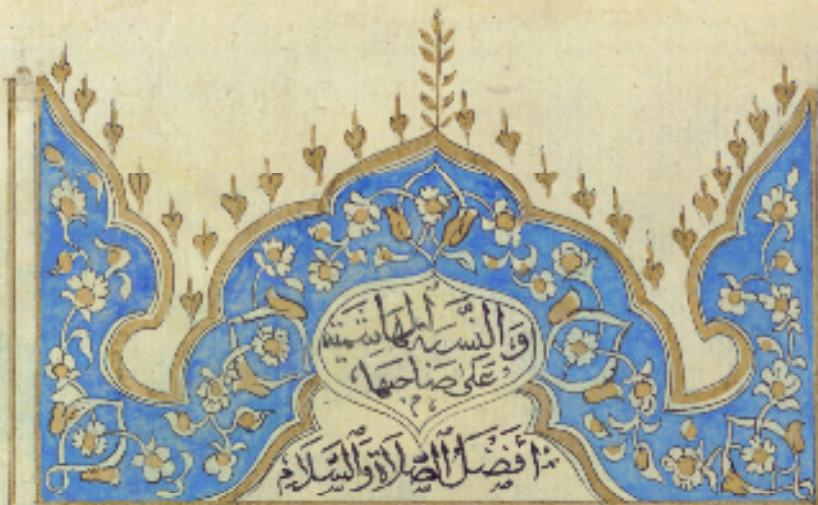 وَالنِّسْبَةِ الهَاشِمِيَّةِ
عَلَىٰ صَاحِبِهَا
أَفْضَلُ الصَّلَاةِ وَالسَّلَامِ